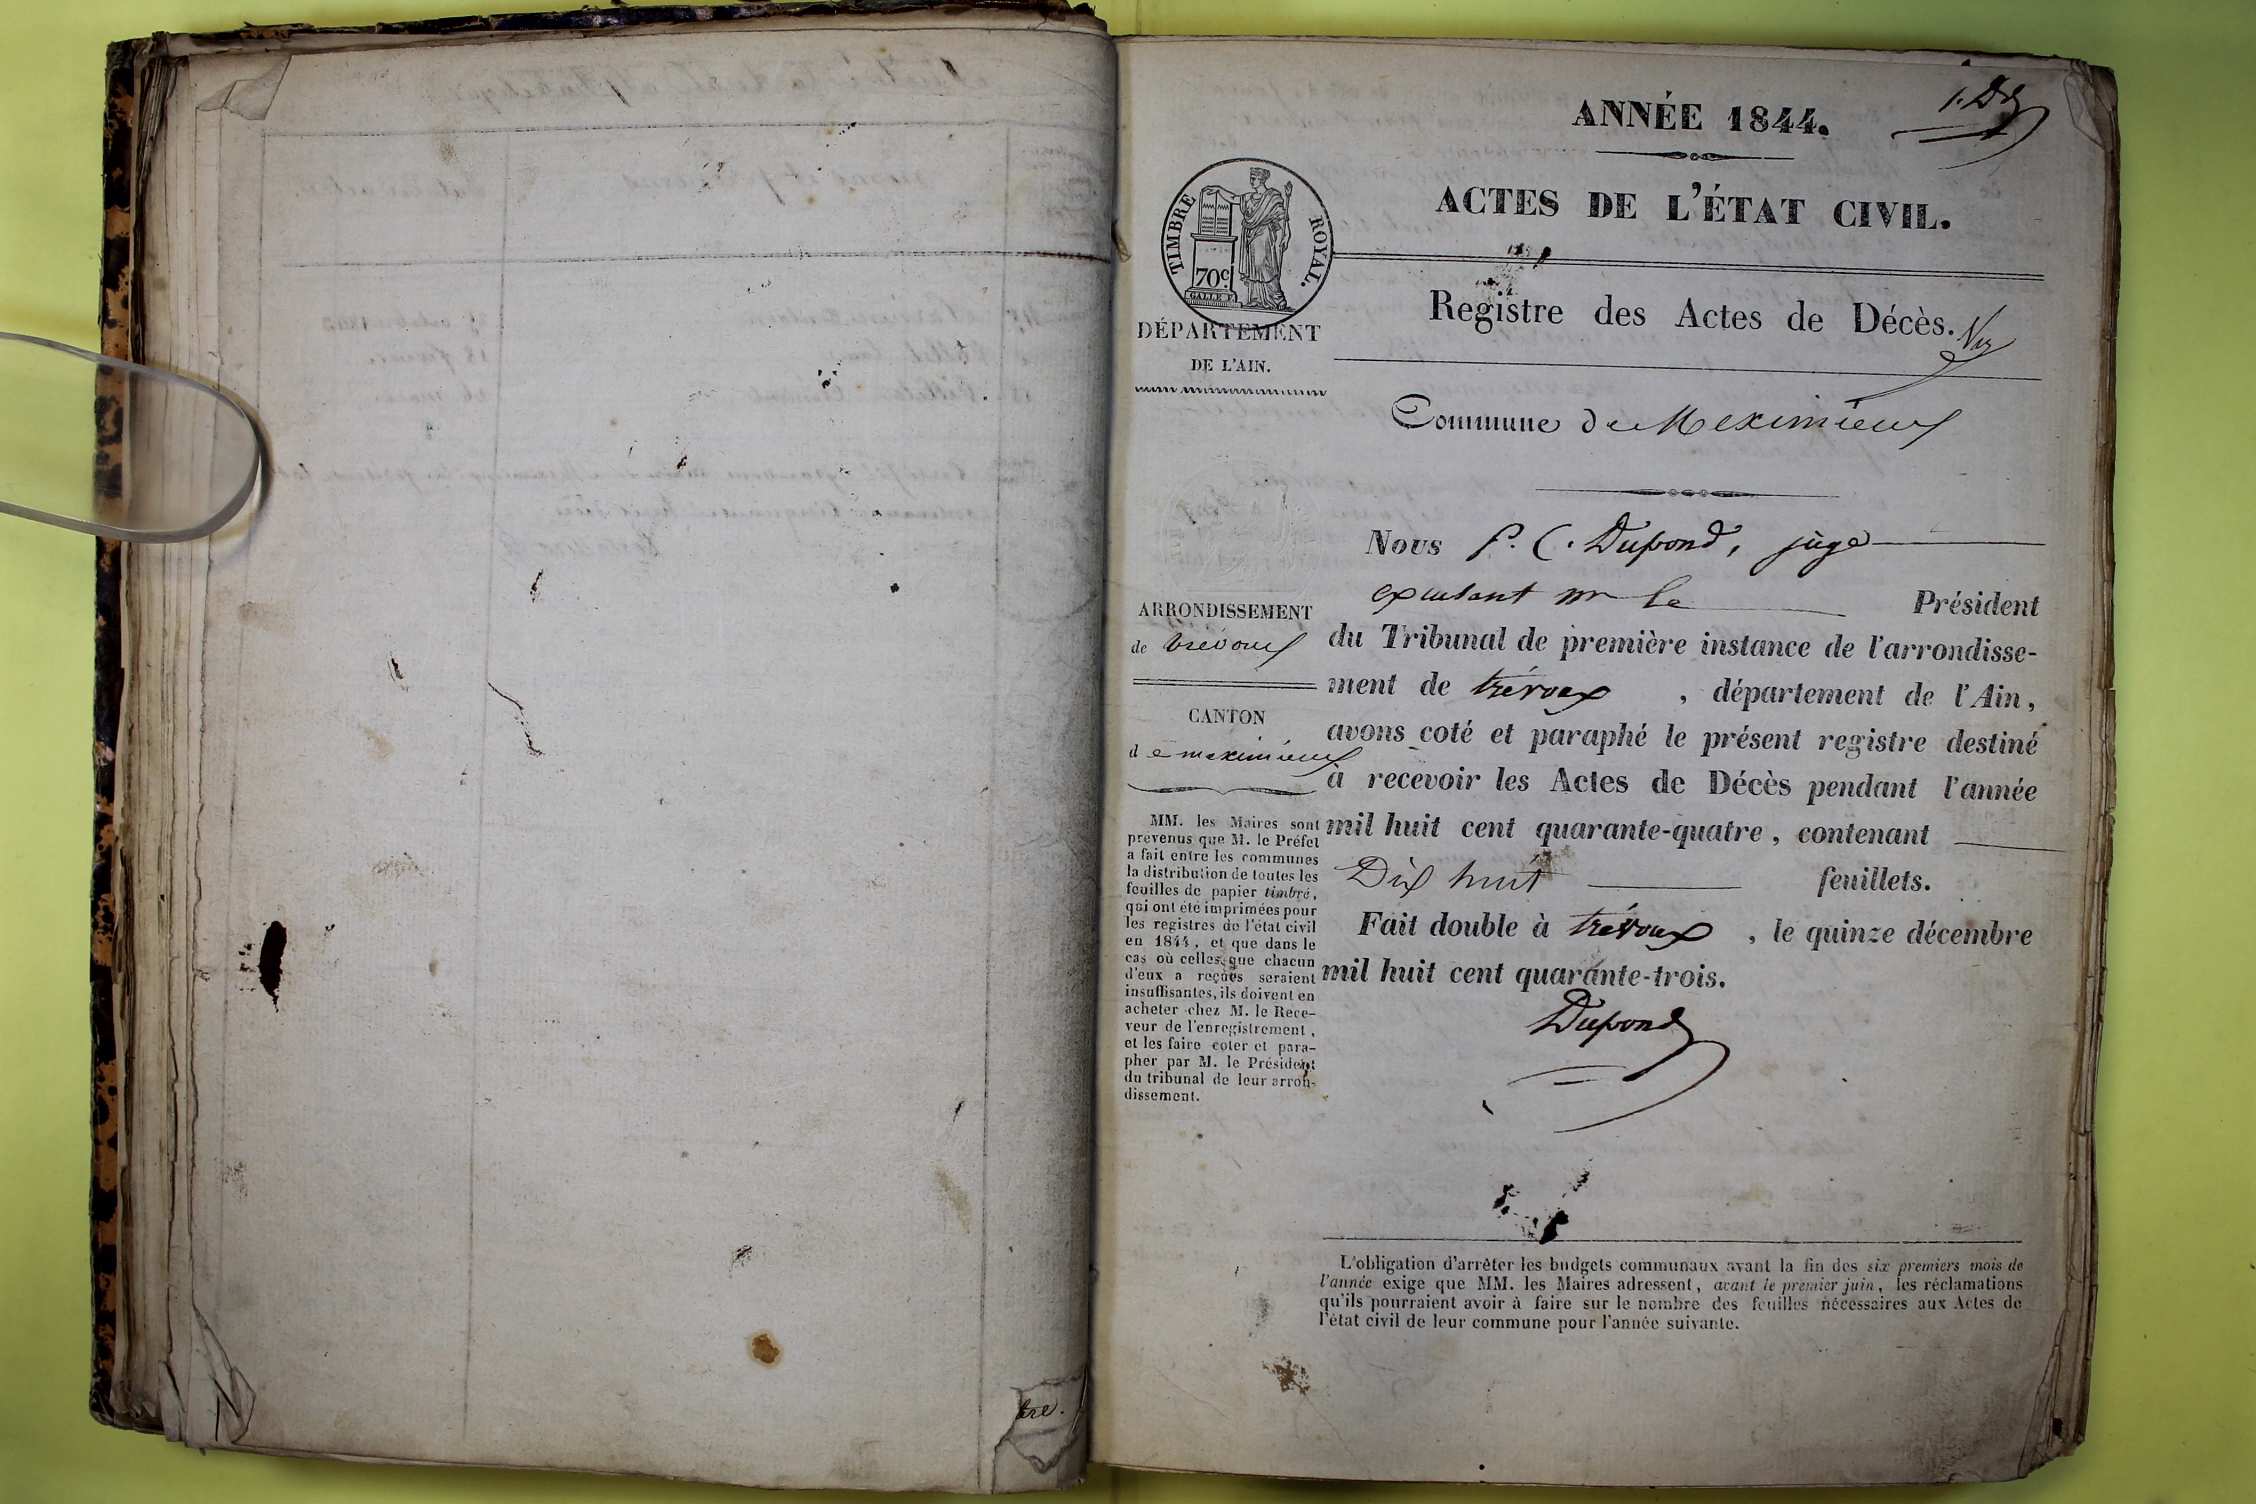 ANNÉE 1844.
ACTES DE L'ÉTAT CIVIL.
TIMBRE ROYAL.
70c.
GALLE F.
Registre des Actes de Décès.
DÉPARTEMENT
DE L'AIN.
Commune de Meximieux
Nous P. C. Dupond, juge
excusant mr le Président
du Tribunal de première instance de l'arrondisse-
ment de trévoux , département de l'Ain,
avons coté et paraphé le présent registre destiné
à recevoir les Actes de Décès pendant l'année
mil huit cent quarante-quatre, contenant
Dix huit feuillets.
Fait double à trévoux , le quinze décembre
mil huit cent quarante-trois.
Dupond
ARRONDISSEMENT
de trévoux
CANTON
de meximieux
MM. les Maires sont
prévenus que M. le Préfet
a fait entre les communes
la distribution de toutes les
feuilles de papier timbré,
qui ont été imprimées pour
les registres de l'état civil
en 1844, et que dans le
cas où celles que chacun
d'eux a reçues seraient
insuffisantes, ils doivent en
acheter chez M. le Rece-
veur de l'enregistrement,
et les faire coter et para-
pher par M. le Président
du tribunal de leur arron-
dissement.
L'obligation d'arrêter les budgets communaux avant la fin des six premiers mois de
l'année exige que MM. les Maires adressent, avant le premier juin, les réclamations
qu'ils pourraient avoir à faire sur le nombre des feuilles nécessaires aux Actes de
l'état civil de leur commune pour l'année suivante.
tre.